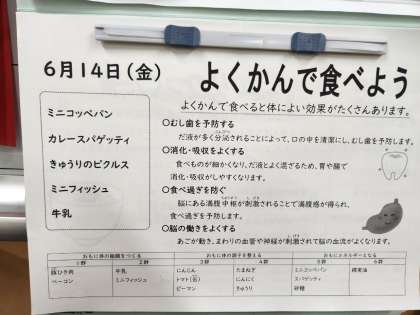 6月14日(金)
よくかんで食べよう
よくかんで食べると体によい効果がたくさんあります。
ミニコッペパン
カレースパゲッティ
きゅうりのピクルス
ミニフィッシュ
牛乳
○むし歯を予防する
だ液が多く分泌されることによって、口の中を清潔にし、むし歯を予防します。
○消化・吸収をよくする
食べものが細かくなり、だ液とよく混ざるため、胃や腸で
消化・吸収がしやすくなります。
○食べ過ぎを防ぐ
脳にある満腹中枢が刺激されることで満腹感が得られ、
食べ過ぎを予防します。
○脳の働きをよくする
あごが動き、まわりの血管や神経が刺激されて脳の血流がよくなります。
おもに体の組織をつくる おもに体の調子を整える おもにエネルギーとなる
1群 2群 3群 4群 5群 6群
豚ひき肉 牛乳 にんじん たまねぎ ミニコッペパン 綿実油
ベーコン ミニフィッシュ トマト(缶) にんにく スパゲッティ
ピーマン きゅうり 砂糖